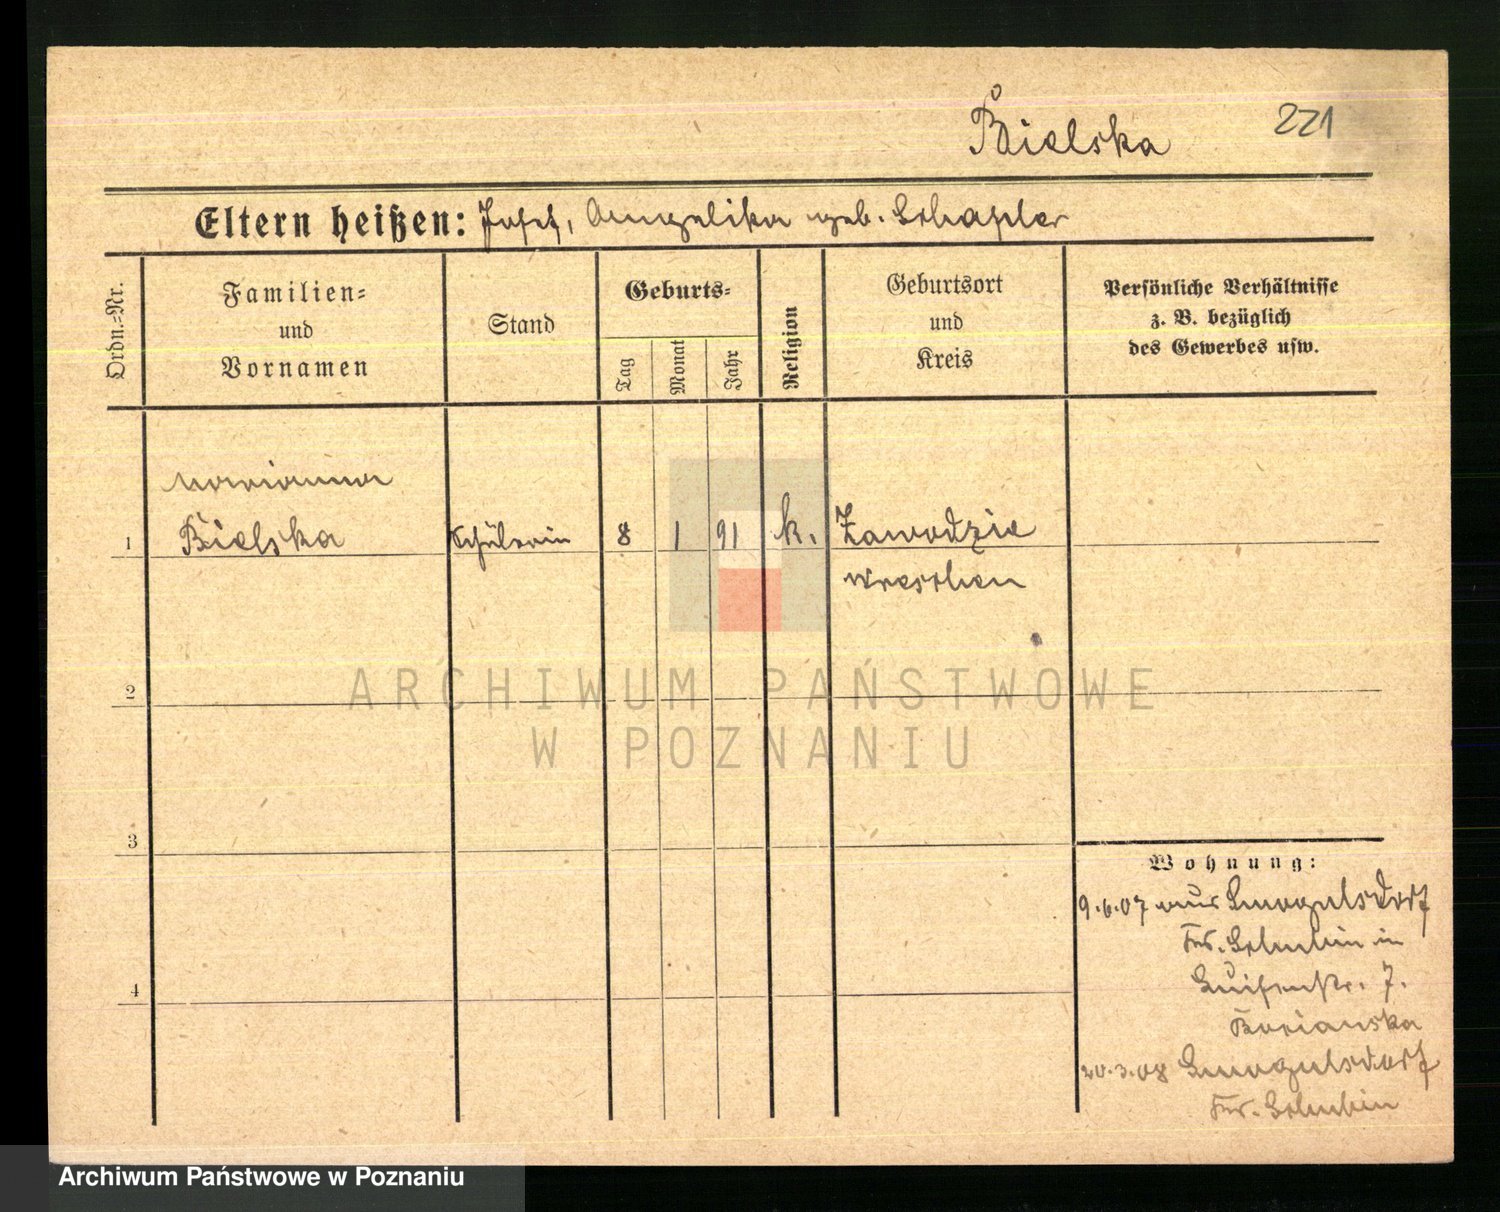 Bielska
221
Eltern heißen: Josef, Angelika geb. Schapler
Ordn.-Nr.
Familien-
und
Vornamen
Stand
Geburts-
Tag
Monat
Jahr
Religion
Geburtsort
und
Kreis
Persönliche Verhältnisse
z. B. bezüglich
des Gewerbes usw.
Marianna
1 Bielska Schülerin 8 1 91 k. Zawodzie
Wreschen
2
ARCHIWUM PAŃSTWOWE
W POZNANIU
3
Wohnung:
9.6.07 aus Smogulsdorf
Krs. Schubin in
Luisenstr. 7.
4
20.3.08 Smogulsdorf
Krs. Schubin
Archiwum Państwowe w Poznaniu